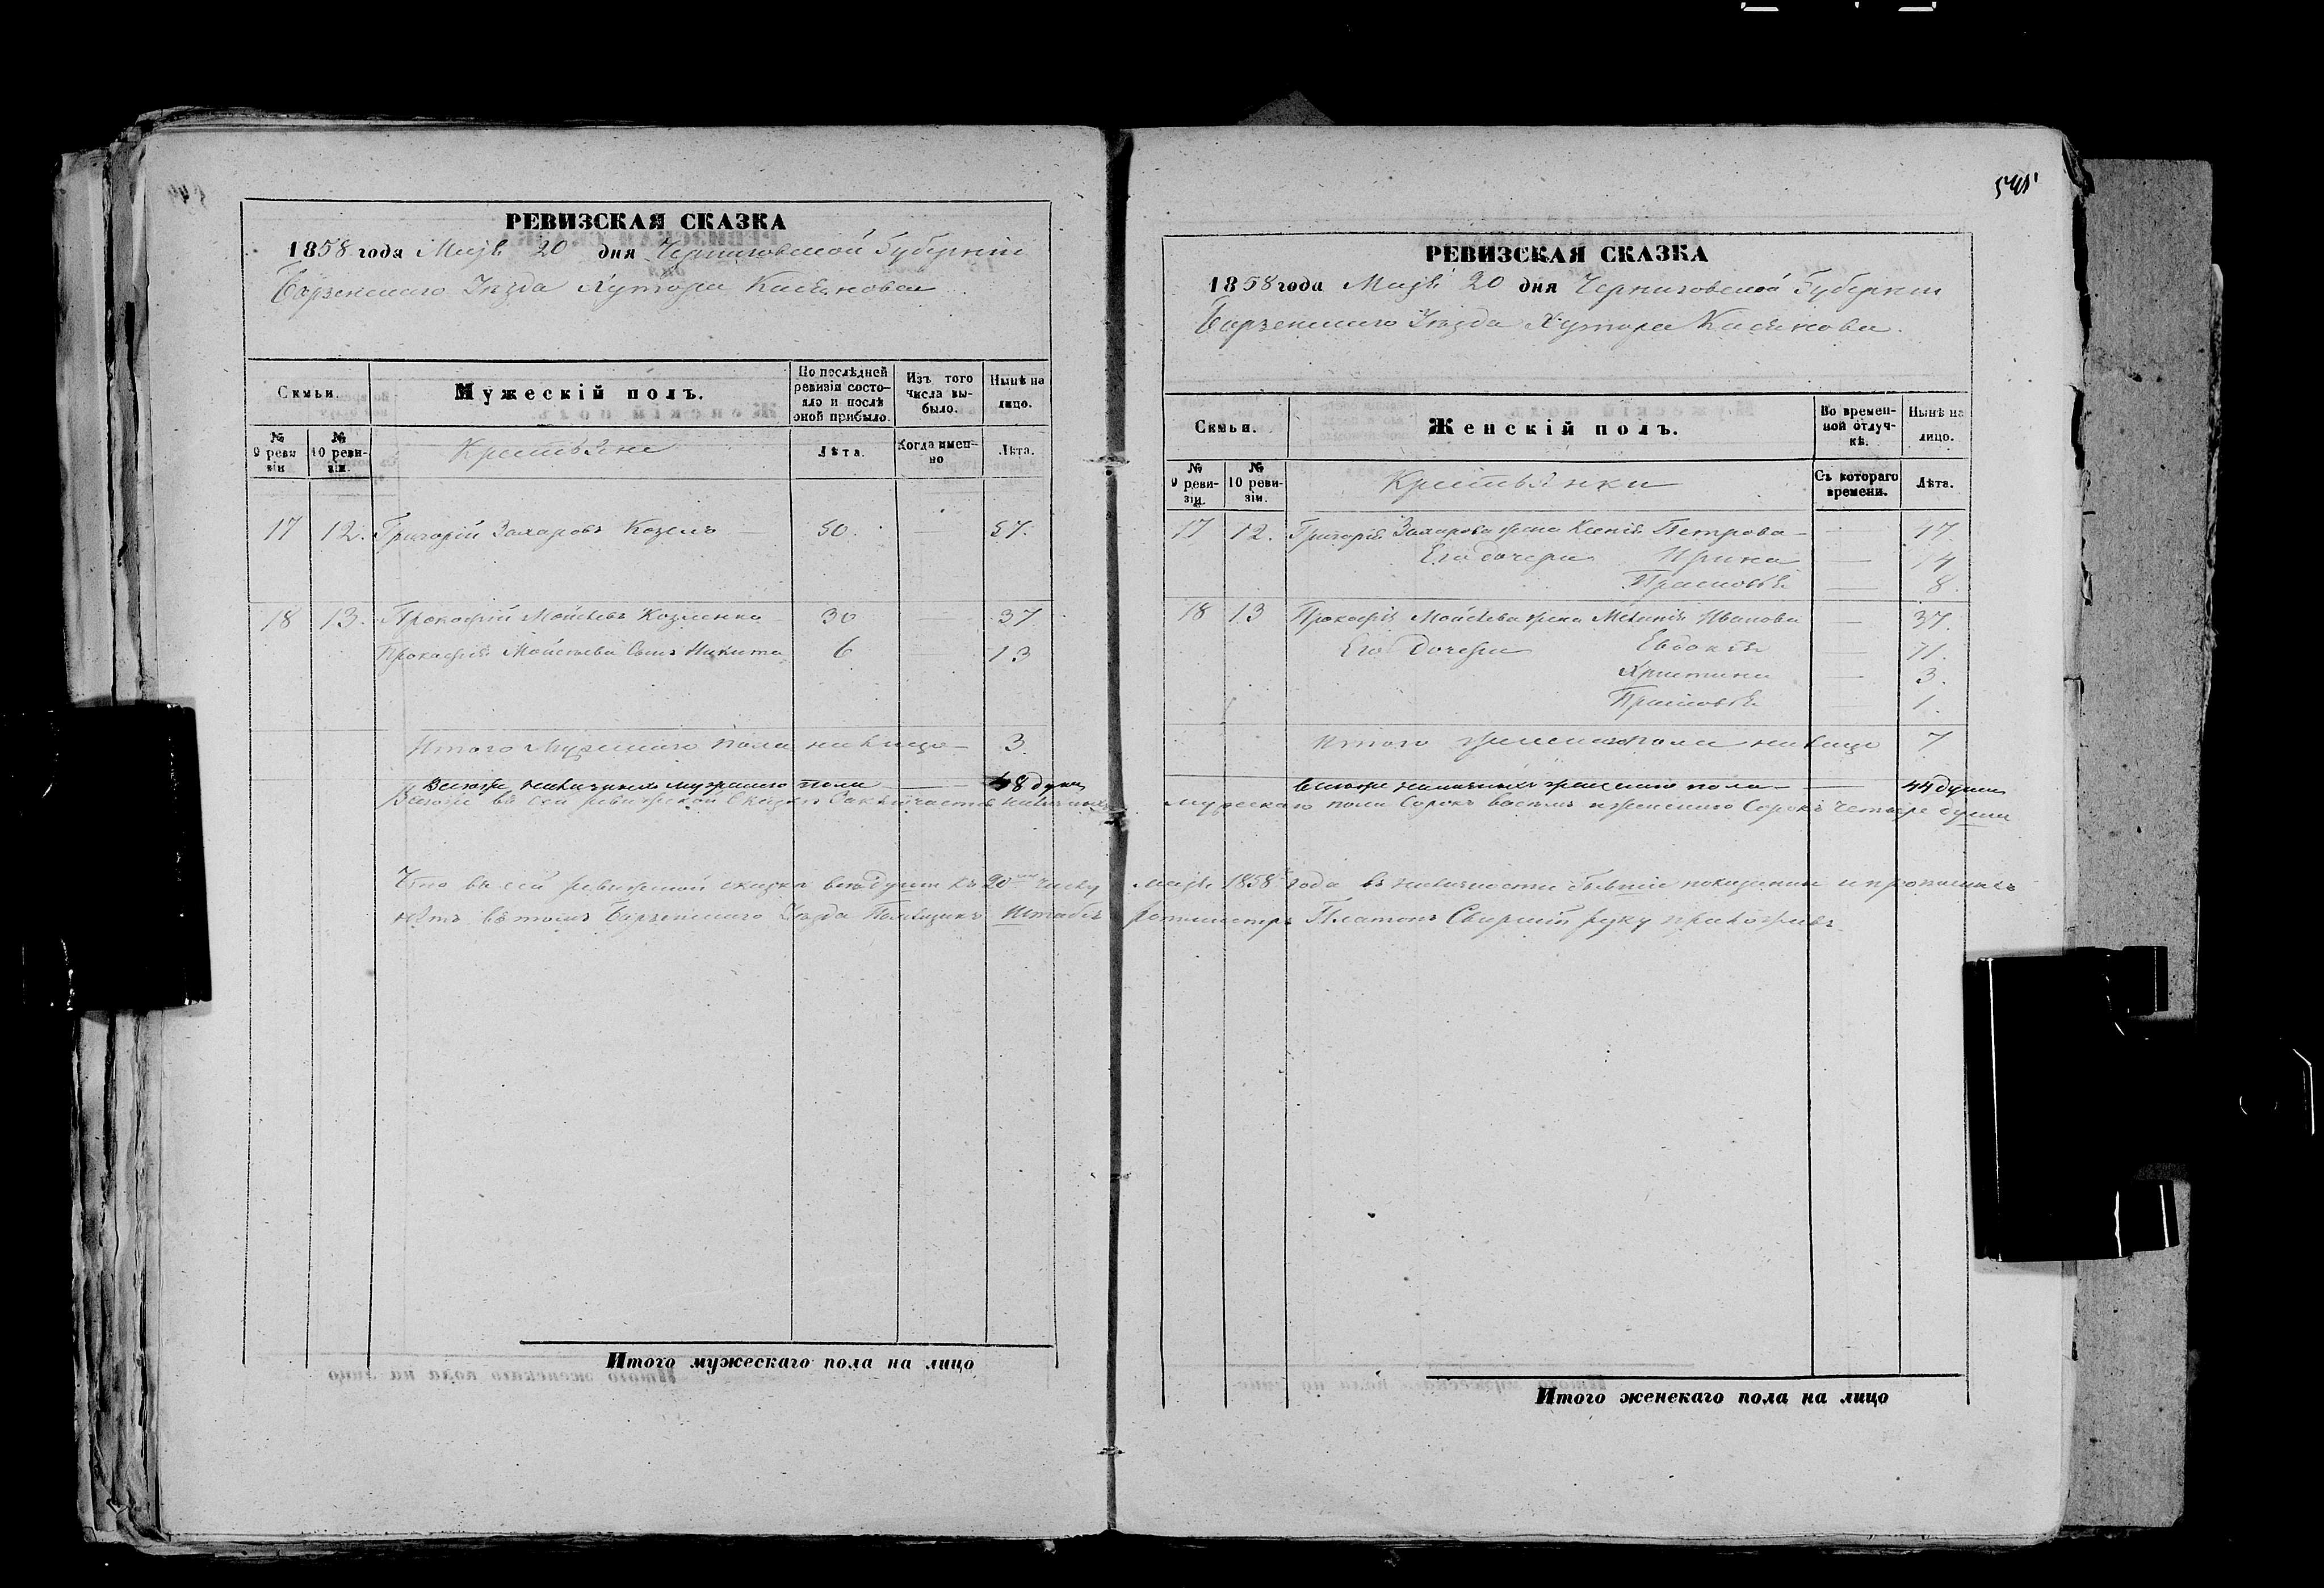 545
РЕВИЗСКАЯ СКАЗКА
1858 года Маія 20 дня Черниговской Губерніи
Борзенскаго Уѣзда Хутора Касянова
Семьи.
Мужескій полъ.
По послѣдней ревизіи состояло и послѣ оной прибыло.
Изъ того числа выбыло.
Нынѣ на лицо.
№ 9 ревизіи
№ 10 ревизіи.
Крестьяне
Лѣта.
Когда именно
Лѣта.
17 12. Григорій Захаровъ Козелъ — 50. — 57.
18 13. Прокофій Мойсѣевъ Козленко 30 — 37
Прокофія Мойсѣева Сынъ Никита 6 13
Итого Мужескаго пола на лицо — 3.
Всего наличныхъ мужескаго пола — 48 душъ
РЕВИЗСКАЯ СКАЗКА
1858 года Маія 20 дня Черниговской Губерніи
Борзенскаго Уѣзда Хутора Касянова.
Семьи.
Женскій полъ.
Во временной отлучкѣ.
Нынѣ на лицо.
№ 9 ревизіи.
№ 10 ревизіи.
Крестьянки
Съ котораго времени.
Лѣта.
17 12. Григорія Захарова жена Ксенія Петрова — —
Его дочери Ирина — 14
Прасковья — 8.
18 13 Прокофія Мойсѣева жена Меланія Иванова — 37.
Его Дочери Евдокія — 11.
Христина — 3.
Прасковья 1.
Итого женскаго пола на лицо 7
Всего наличныхъ женскаго пола — — 44 души
Всего въ сей ревизской Сказкѣ Заключается наличныхъ мужескаго пола Сорокъ восемь и женскаго Сорокъ четыре души
Что въ сей ревизской сказкѣ всѣ души къ 20му числу Маія 1858 года въ наличности бывшіе показаны и прописныхъ
нѣтъ въ томъ Борзенскаго Уѣзда Помѣщикъ Штабсъ Ротмистръ Платонъ руку приложилъ.
Итого мужескаго пола на лицо
Итого женскаго пола на лицо